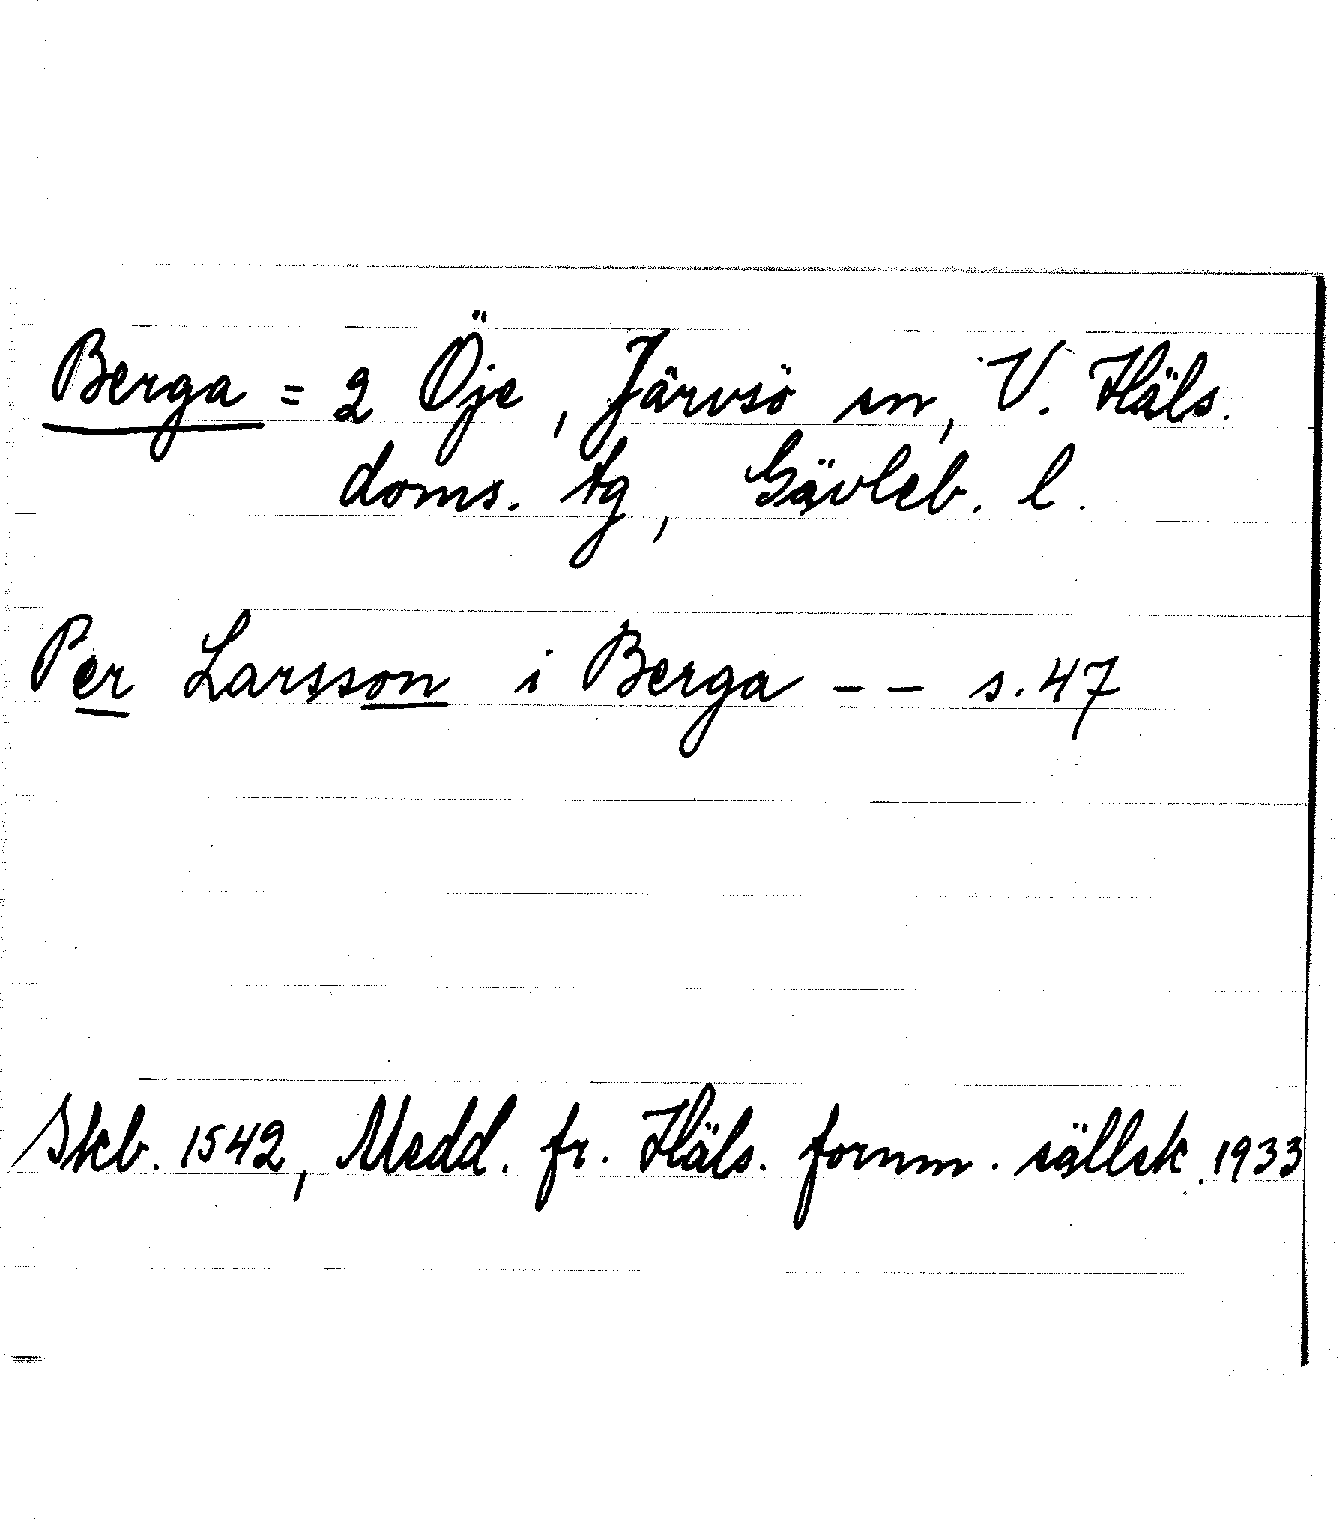 Berga = 2 Öje, Järvsö sn, V. Häls.
doms. tg, Gävleb. l.
Per Larsson i Berga - - s. 47
Skb. 1542, Medd. fr. Häls. fornm. sällsk. 1933